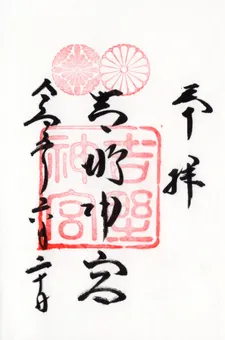 奉拝
吉野神宮
吉野神宮
令和 年六月二十日